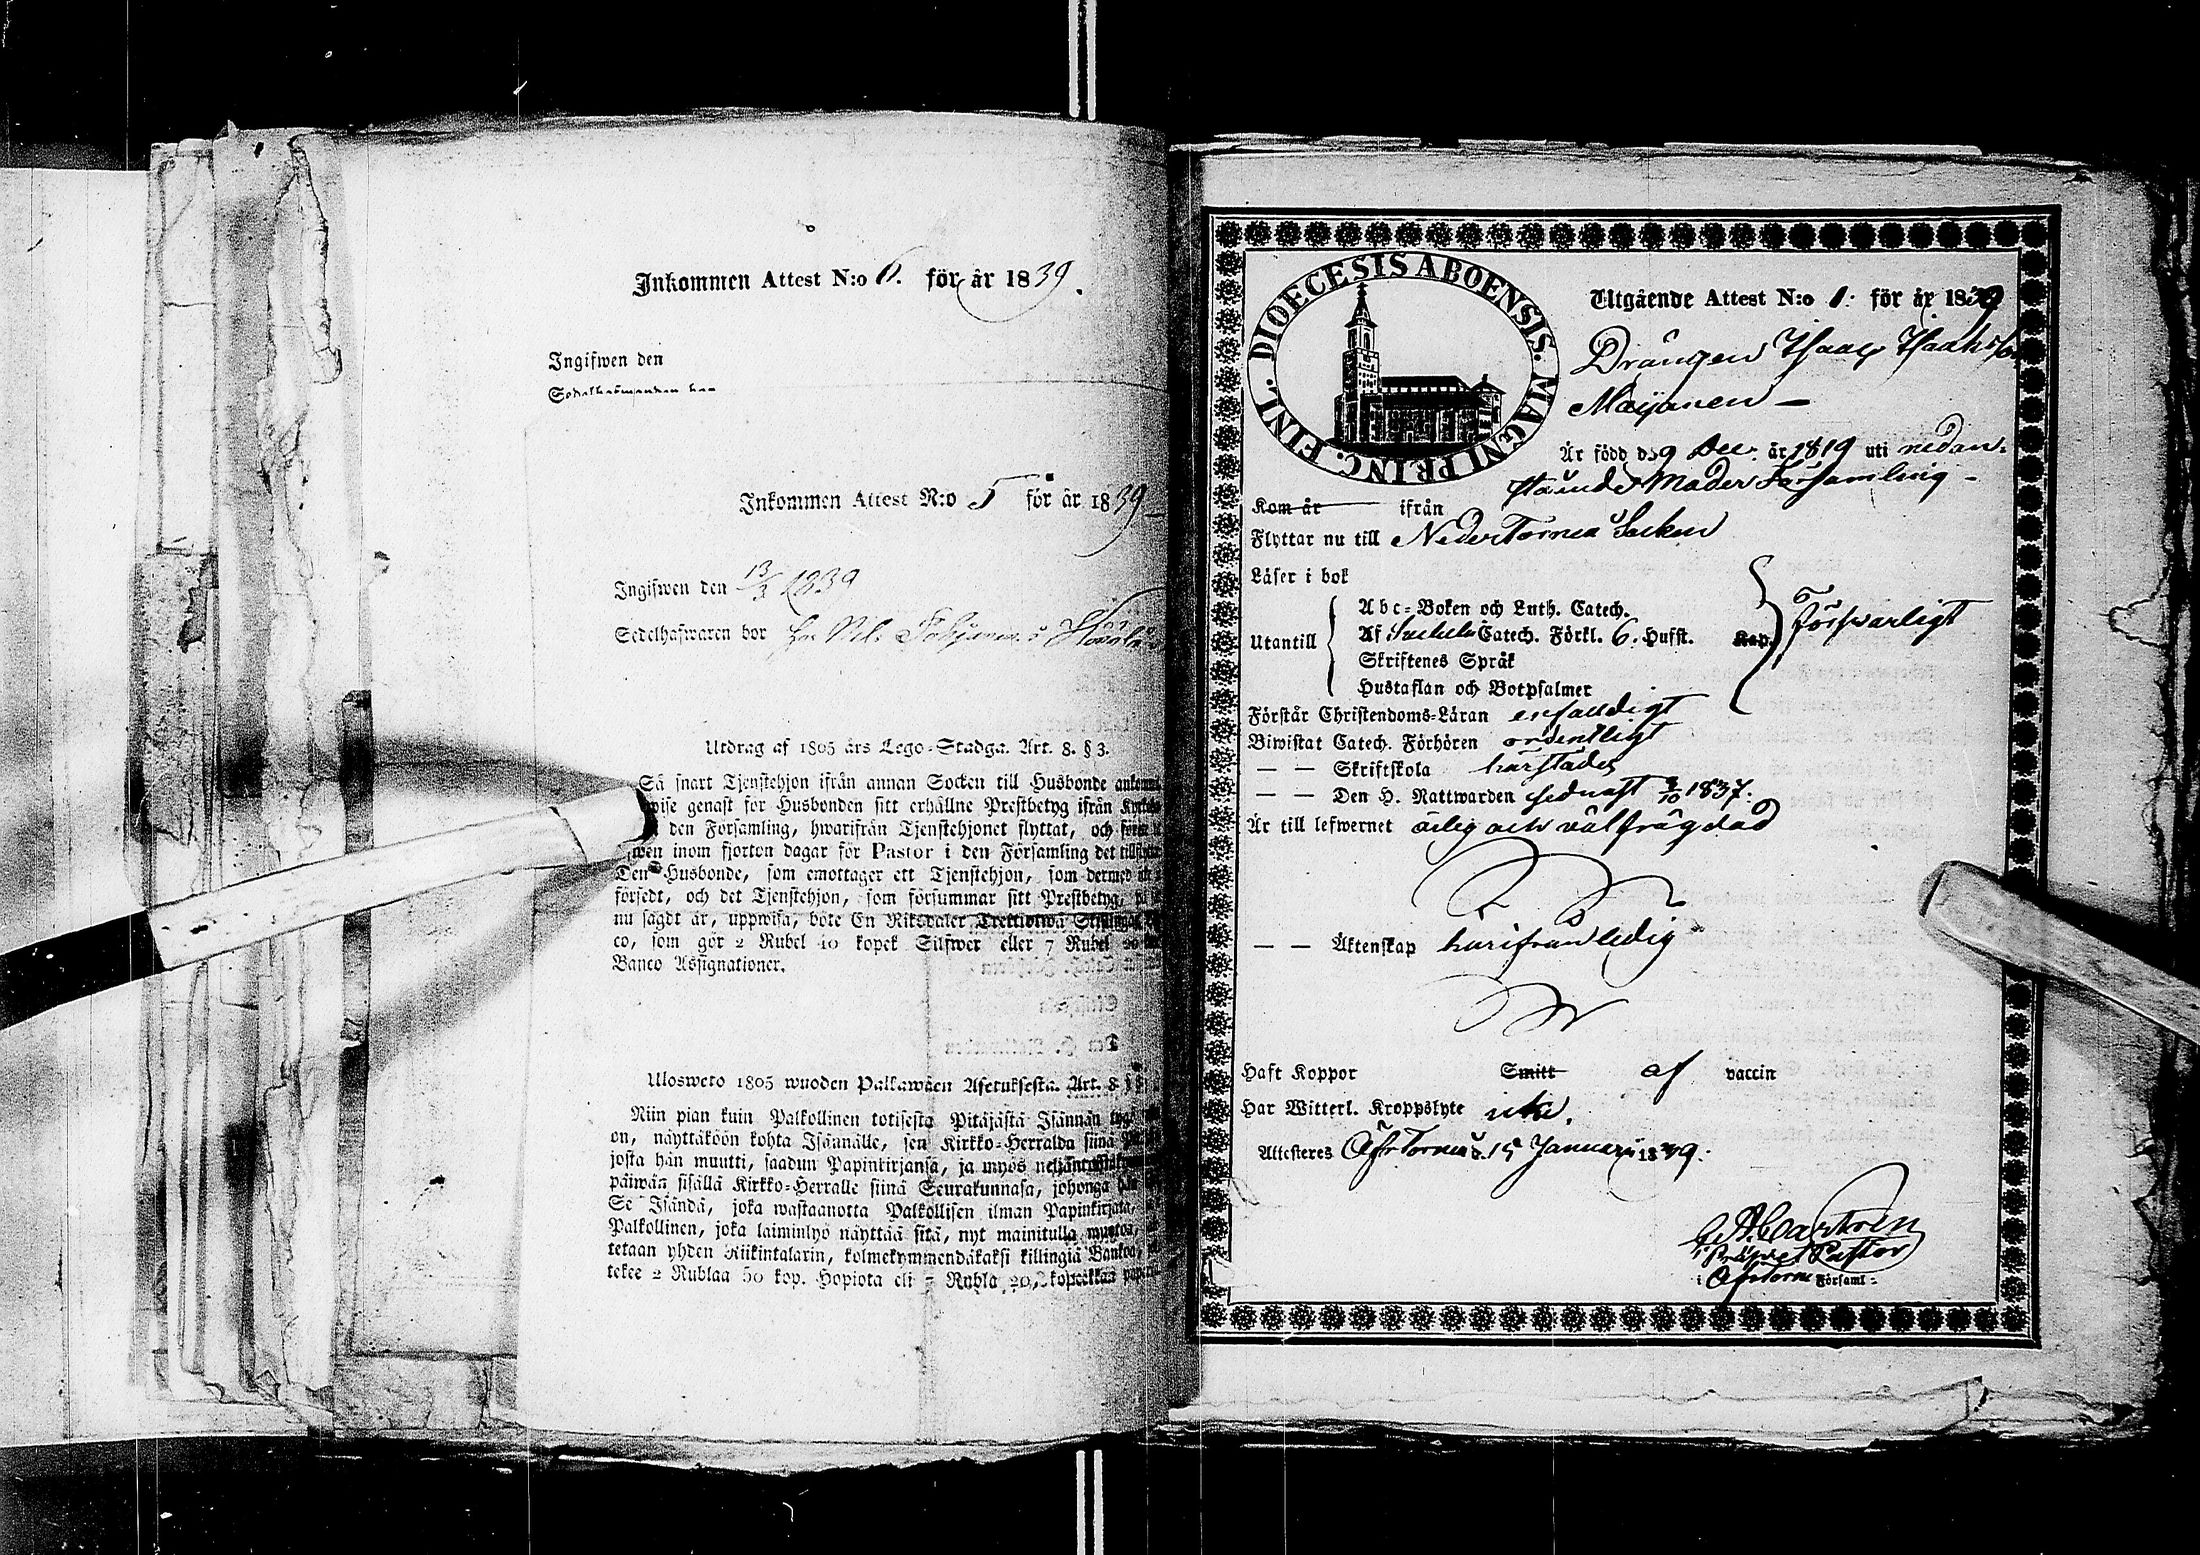 Inkommen Attest N:o 6. för år 1839.
Ingifwen den
Inkommen Attest N:o 5 för år 1839
Ingifwen den 13/3 1839
Sedelhafwaren bor
Utdrag af 1805 års Lego-Stadga. Art. 8. § 3.
Så snart Tjenstehjon ifrån annan Socken till Husbonde
genast för Husbonden sitt erhållne Prestbetyg ifrån
den Församling, hwarifrån Tjenstehjonet flyttat, och
inom fjorton dagar för Pastor i den Församling det
Den Husbonde, som emottager ett Tjenstehjon, som dermed
försedt, och det Tjenstehjon, som försummar sitt Prestbetyg,
nu sagdt är, uppwisa, böte En Riksdaler Trettiotwå
co, som gör 2 Rubel 40 kopek Silfwer eller 7 Rubel 20
Banco Assignationer.
Ulosweto 1805 wuoden Palkawäen Asetuksesta. Art. 8 §
Niin pian kuin Palkollinen toisesta Pitäjästä Isännän
on, näyttäköön kohta Isännälle, sen Kirkko-Herralda siinä
josta hän muutti, saadun Papinkirjansa, ja myös
päiwän sisällä Kirkko-Herralle siinä Seurakunnasa, johonga
Se Isändä, joka wastaanotta Palkollisen ilman Papinkirjata,
Palkollinen, joka laiminlyö näyttää sitä, nyt mainitulla
tetaan yhden Riikintalarin, kolmekymmendäkaksi killingiä Bankoa,
tekee 2 Rublaa 50 kop. Hopiota eli 7 Rubla 20
DIOECESIS ABOENSIS. MAGNI PRINC. FINL.
Utgående Attest N:o 1. för år 1839
Drängen Isaac Isaksson
Maijanen –
Är född d. 9 Dec. år 1819 uti nedan-
stående Moder Församling –
Kom år ifrån
Flyttar nu till Neder Torneå Socken
Läser i bok
Abc-Boken och Luth. Catech.
Utantill Af Catech. Förkl. 6. Hufst. Kap. försvarligt
Skriftenes Språk
Hustaflan och Botpsalmer
Förstår Christendoms-Läran enfaldigt
Biwistat Catech. Förhören ordentligt
— — Skriftskola härstädes
— — Den H. Nattwarden sednast 8/10 1837.
Är till lefwernet ärlig och välfrägdad
— — Äktenskap härifrån ledig
Haft Koppor Smitt af vaccin
Har Witterl. Kroppslyte icke.
Attesteres Öfr Torneå d. 15 Januari 1839.
Castrén
Pastor
i Öfr Torne Församl: